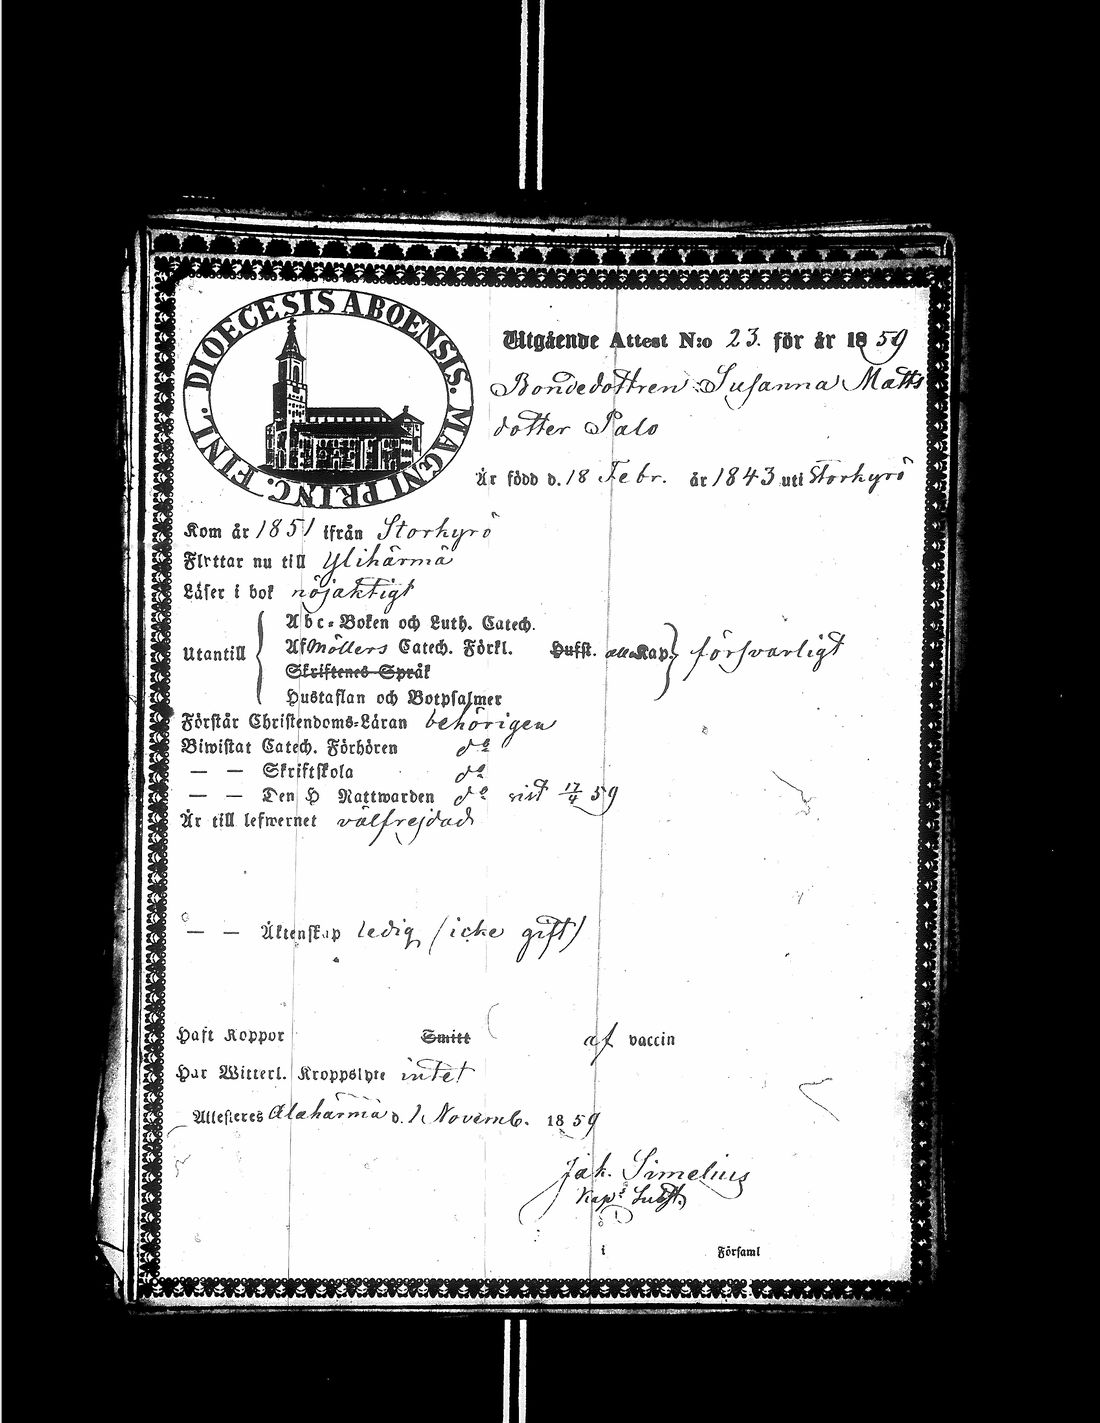 DIOECESIS ABOENSIS. MAGNI PRINC. FINL.
Utgående Attest N:o 23. för år 1859
Bondedottren Susanna Matts
dotter Palo
Är född d. 18 Febr. år 1843 uti Storkyrö
Kom år 1851 ifrån Storkyrö
Flyttar nu till Ylihärmä
Läser i bok nöjaktigt
Abc-Boken och Luth. Catech.
Utantill Af Möllers Catech. Förkl. Hufst. alla Kap. försvarligt
Skriftenes Språk
Hustaflan och Botpsalmer
Förstår Christendoms-Läran behörigen
Biwistat Catech. Förhören do
— — Skriftskola do
— — Den H Nattwarden do sist 17/4 59
Är till lefwernet välfrejdad
— — Äktenskap ledig (icke gift)
Haft Koppor Smitt af vaccin
Har Witterl. Kroppslyte intet
Attesteres Alahärmä d. 1 Novemb. 1859
Jak. Simelius
Kap: Subst.
i Församl